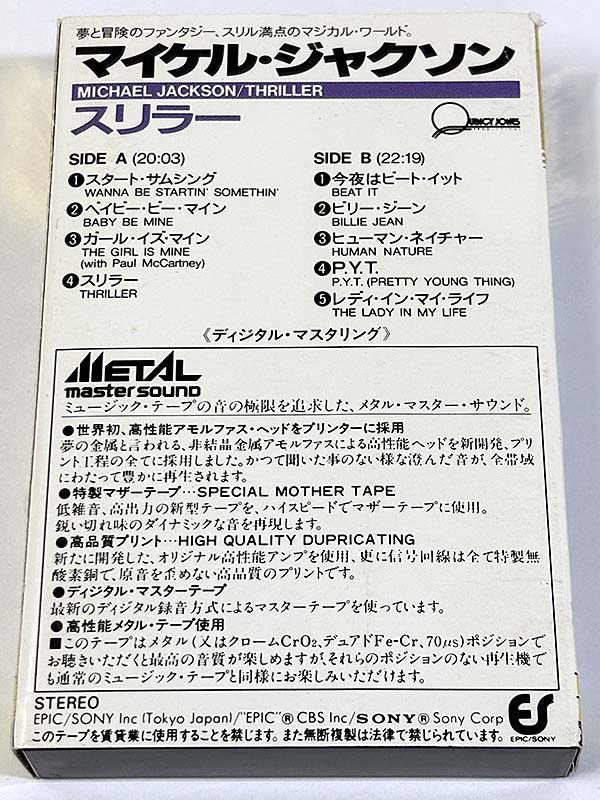 夢と冒険のファンタジー、スリル満点のマジカル・ワールド。
マイケル・ジャクソン
MICHAEL JACKSON/THRILLER
スリラー
QUINCY JONES
SIDE A (20:03)
❶スタート・サムシング
WANNA BE STARTIN' SOMETHIN'
❷ベイビー・ビー・マイン
BABY BE MINE
❸ガール・イズ・マイン
THE GIRL IS MINE
(with Paul McCartney)
❹スリラー
THRILLER
SIDE B (22:19)
❶今夜はビート・イット
BEAT IT
❷ビリー・ジーン
BILLIE JEAN
❸ヒューマン・ネイチャー
HUMAN NATURE
❹P.Y.T.
P.Y.T. (PRETTY YOUNG THING)
❺レディ・イン・マイ・ライフ
THE LADY IN MY LIFE
《ディジタル・マスタリング》
METAL
master sound
ミュージック・テープの音の極限を追求した、メタル・マスター・サウンド。
●世界初、高性能アモルファス・ヘッドをプリンターに採用
夢の金属と言われる、非結晶金属アモルファスによる高性能ヘッドを新開発、プリ
ント工程の全てに採用しました。かつて聞いた事のない様な澄んだ音が、全帯域
にわたって豊かに再生されます。
●特製マザーテープ…SPECIAL MOTHER TAPE
低雑音、高出力の新型テープを、ハイスピードでマザーテープに使用。
鋭い切れ味のダイナミックな音を再現します。
●高品質プリント…HIGH QUALITY DUPRICATING
新たに開発した、オリジナル高性能アンプを使用、更に信号回線は全て特製無
酸素銅で、原音を歪めない高品質のプリントです。
●ディジタル・マスターテープ
最新のディジタル録音方式によるマスターテープを使っています。
●高性能メタル・テープ使用
■このテープはメタル(又はクロームCrO₂、デュアドFe-Cr、70μs)ポジションで
お聴きいただくと最高の音質が楽しめますが、それらのポジションのない再生機で
も通常のミュージック・テープと同様にお楽しみいただけます。
STEREO
EPIC/SONY Inc (Tokyo Japan)/"EPIC"® CBS Inc/SONY® Sony Corp
このテープを賃貸業に使用することを禁じます。また無断複製は法律で禁じられています。
ES
EPIC/SONY